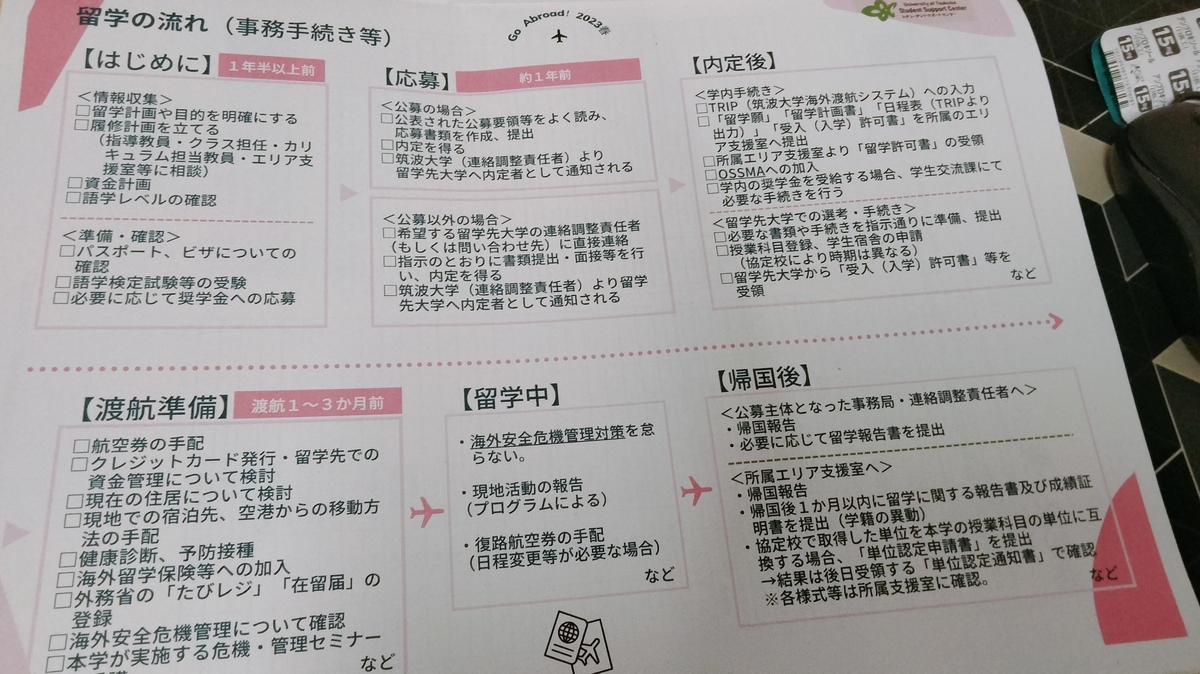 留学の流れ（事務手続き等）
Go Abroad! 2023春
University of Tsukuba
Student Support Center
【はじめに】
１年半以上前
＜情報収集＞
□留学計画や目的を明確にする
□履修計画を立てる
（指導教員・クラス担任・カリ
キュラム担当教員・エリア支
援室等に相談）
□資金計画
□語学レベルの確認
＜準備・確認＞
□パスポート、ビザについての
確認
□語学検定試験等の受験
□必要に応じて奨学金への応募
【応募】
約１年前
＜公募の場合＞
□公表された公募要領等をよく読み、
応募書類を作成、提出
□内定を得る
□筑波大学（連絡調整責任者）より
留学先大学へ内定者として通知される
＜公募以外の場合＞
□希望する留学先大学の連絡調整責任者
（もしくは問い合わせ先）に直接連絡
□指示のとおりに書類提出・面接等を行
い、内定を得る
□筑波大学（連絡調整責任者）より留学
先大学へ内定者として通知される
【内定後】
＜学内手続き＞
□TRIP（筑波大学海外渡航システム）への入力
□「留学願」「留学計画書」「日程表（TRIPより
出力）」「受入（入学）許可書」を所属のエリ
ア支援室へ提出
□所属エリア支援室より「留学許可書」の受領
□OSSMAへの加入
□学内の奨学金を受給する場合、学生交流課にて
必要な手続きを行う
＜留学先大学での選考・手続き＞
□必要な書類や手続きを指示通りに準備、提出
□授業科目登録、学生宿舎の申請
（協定校により時期は異なる）
□留学先大学から「受入（入学）許可書」等を
受領
など
【渡航準備】
渡航１～３か月前
□航空券の手配
□クレジットカード発行・留学先での
資金管理について検討
□現在の住居について検討
□現地での宿泊先、空港からの移動方
法の手配
□健康診断、予防接種
□海外留学保険等への加入
□外務省の「たびレジ」「在留届」の
登録
□海外安全危機管理について確認
□本学が実施する危機・管理セミナー
など
【留学中】
・海外安全危機管理対策を怠
らない。
・現地活動の報告
（プログラムによる）
・復路航空券の手配
（日程変更等が必要な場合）
など
【帰国後】
＜公募主体となった事務局・連絡調整責任者へ＞
・帰国報告
・必要に応じて留学報告書を提出
＜所属エリア支援室へ＞
・帰国報告
・帰国後１か月以内に留学に関する報告書及び成績証
明書を提出（学籍の異動）
・協定校で取得した単位を本学の授業科目の単位に互
換する場合、「単位認定申請書」を提出
→結果は後日受領する「単位認定通知書」で確認
※各様式等は所属支援室に確認。
など
Abroad!
15
15
15
15